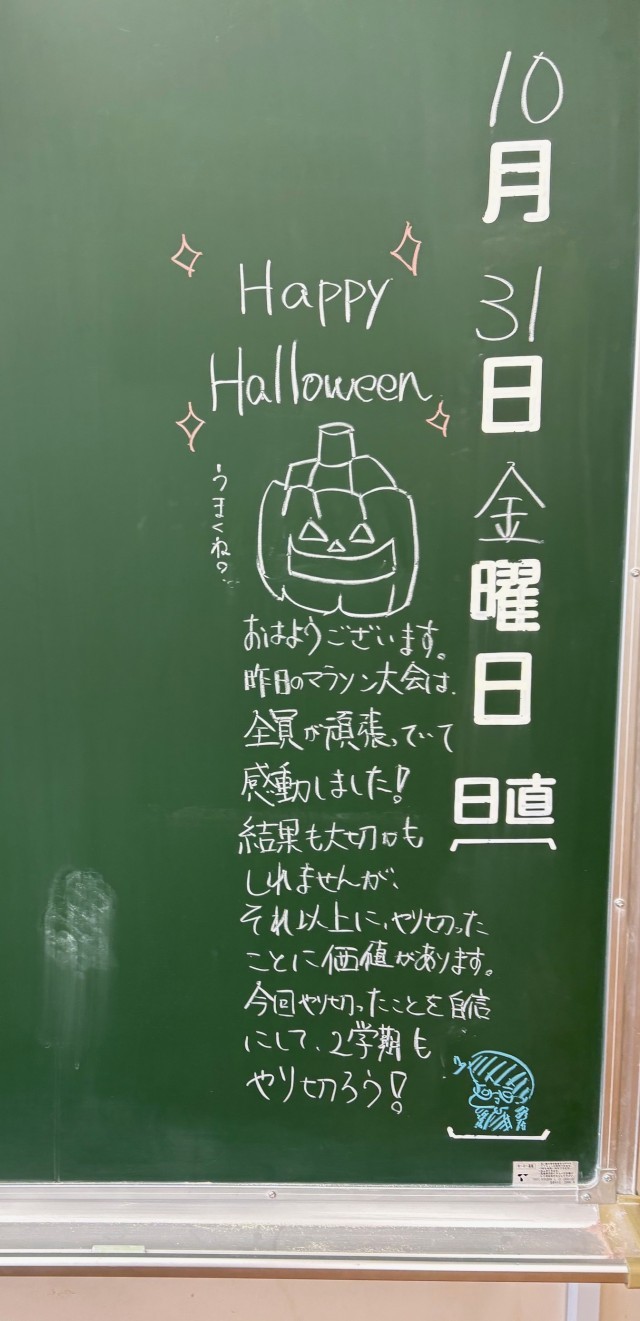 10月31日金曜日
日直
Happy
Halloween
うまくね?
おはようございます。
昨日のマラソン大会は、
全員が頑張っていて
感動しました!
結果も大切かも
しれませんが、
それ以上に、やり切った
ことに価値があります。
今回やり切ったことを自信
にして、2学期も
やり切ろう!